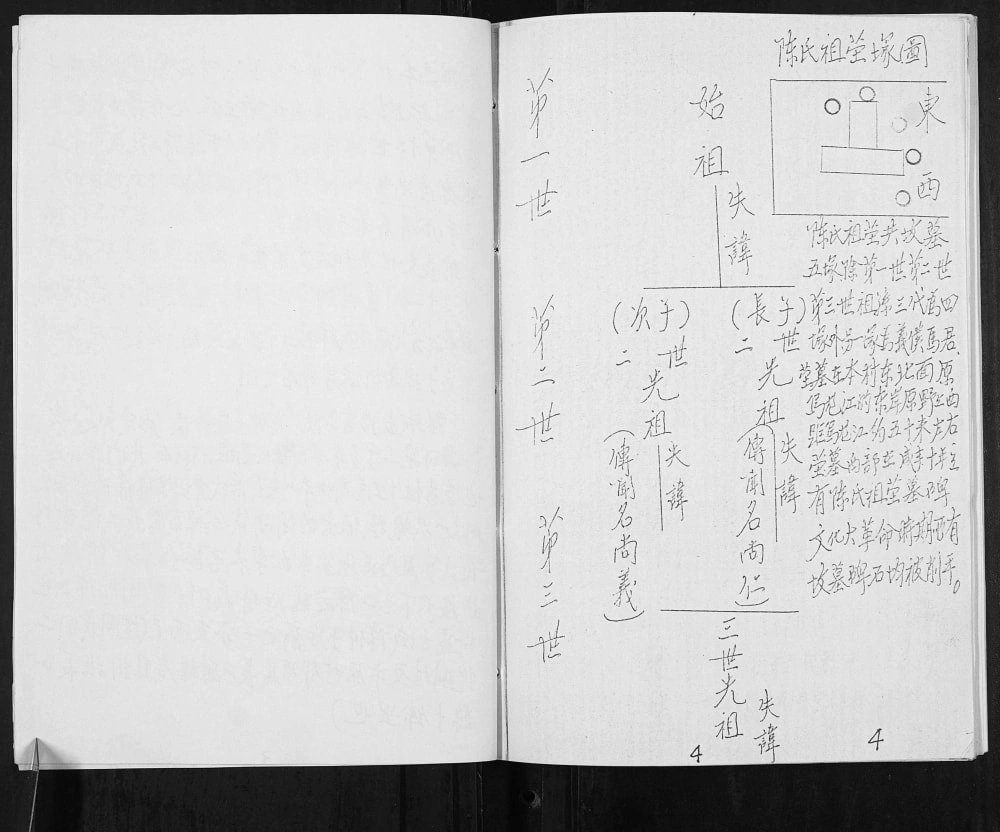 陈氏祖茔塚圖
東
西
陈氏祖茔共坟墓
五塚除第一世第二世
第三世祖深三代爲四
塚外另一塚爲義僕馬君
茔墓在本村东北面原
馬龙江的东岸原野上西
距馬龙江约五十米左右
茔墓内部並咸丰十年立
有陈氏祖茔墓碑
文化大革命時期所有
坟墓碑石均被削平。
始祖
失諱
(長子)
二世先祖
失諱
(傳聞名尚仁)
(次子)
二世先祖
失諱
(傳聞名尚義)
三世先祖
失諱
第一世
第二世
第三世
4
4